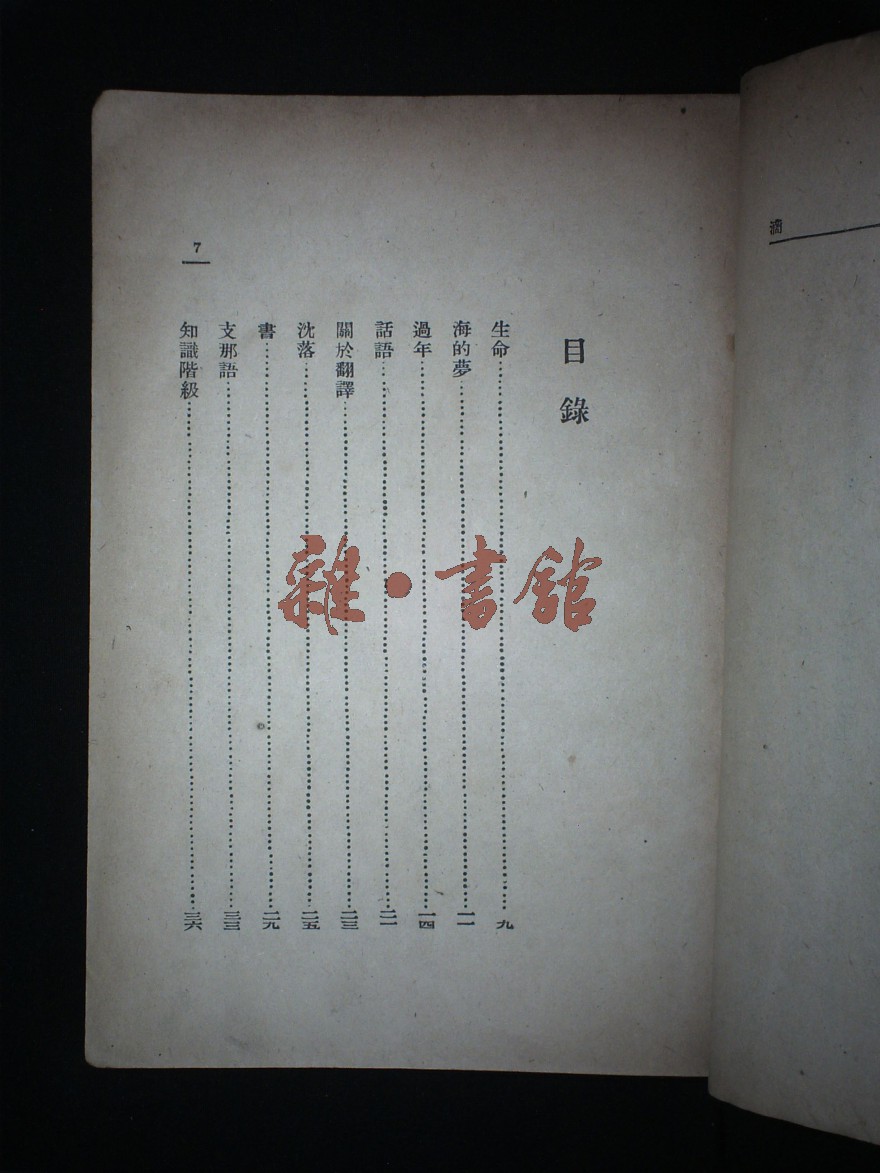 滴
目錄
生命……九
海的夢……一一
過年……一四
話語……二一
關於翻譯……二三
沈落……二五
書……二九
支那語……三三
知識階級……三六
7
雜·書館